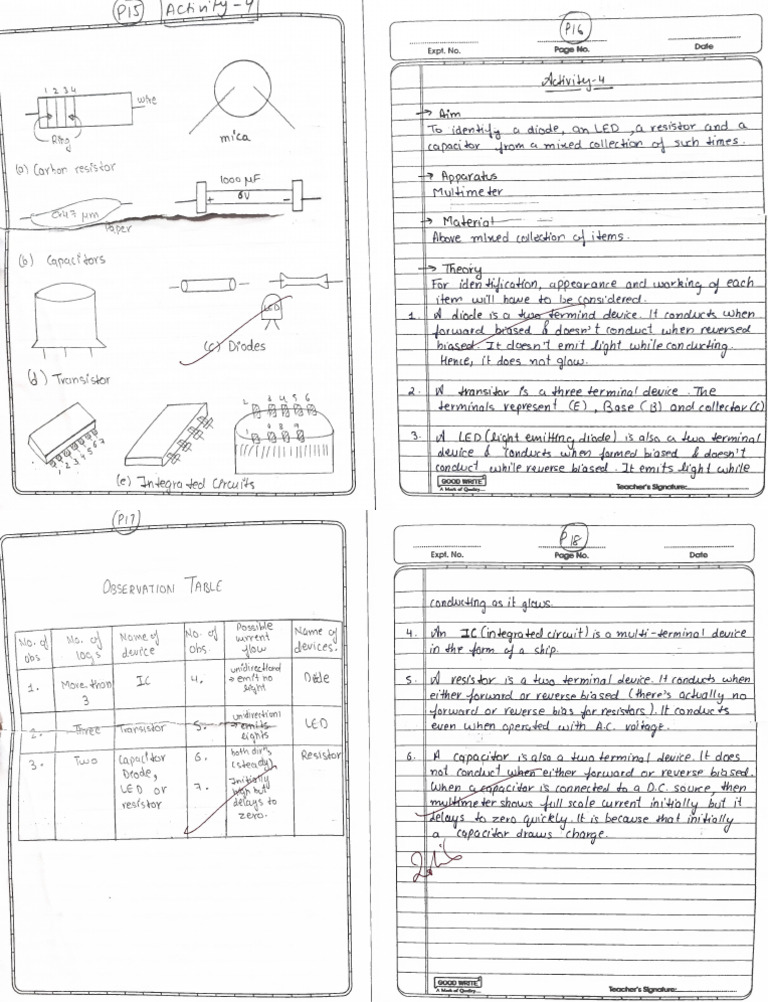 P15 Activity-4
1 2 3 4
wire
Ring
mica
(a) Carbon resistor
1000 µF
6V
0.47 µm
Paper
(b) Capacitors
LED
(c) Diodes
(d) Transistor
1 2 3 4 5 6 7
2 3 4 5 6
(e) Integrated Circuits
P16
Expt. No. Page No. Date
Activity-4
→ Aim
To identify a diode, an LED, a resistor and a
capacitor from a mixed collection of such times.
→ Apparatus
Multimeter
→ Material
Above mixed collection of items.
→ Theory
For identification, appearance and working of each
item will have to be considered.
1. A diode is a two termind device. It conducts when
forward biased & doesn't conduct when reversed
biased. It doesn't emit light while conducting.
Hence, it does not glow.
2. A transitor is a three terminal device. The
terminals represent (E), Base (B) and collector (C)
3. A LED (light emitting diode) is also a two terminal
device & conducts when formed biased & doesn't
conduct while reverse biased. It emits light while
GOOD WRITE
A Mark of Quality
Teacher's Signature:
P17
OBSERVATION TABLE
No. of obs No. of legs Name of device No. of obs. Possible current flow Name of devices.
1. More than 3 IC 4. unidirectional → emit no light Diode
2. Three Transistor 5. unidirectional → emits lights LED
3. Two Capacitor Diode, LED or resistor 6. both dirs (steady) Resistor
7. Initially high but delays to zero.
P18
Expt. No. Page No. Date
conducting as it glows.
4. An IC (integrated circuit) is a multi-terminal device
in the form of a ship.
5. A resistor is a two terminal device. It conducts when
either forward or reverse biased (there's actually no
forward or reverse bias for resistors). It conducts
even when operated with A.C. voltage.
6. A capacitor is also a two terminal device. It does
not conduct when either forward or reverse biased.
When a capacitor is connected to a D.C. source, then
multimeter shows full scale current initially but it
delays to zero quickly. It is because that initially
a capacitor draws charge.
GOOD WRITE
A Mark of Quality
Teacher's Signature: